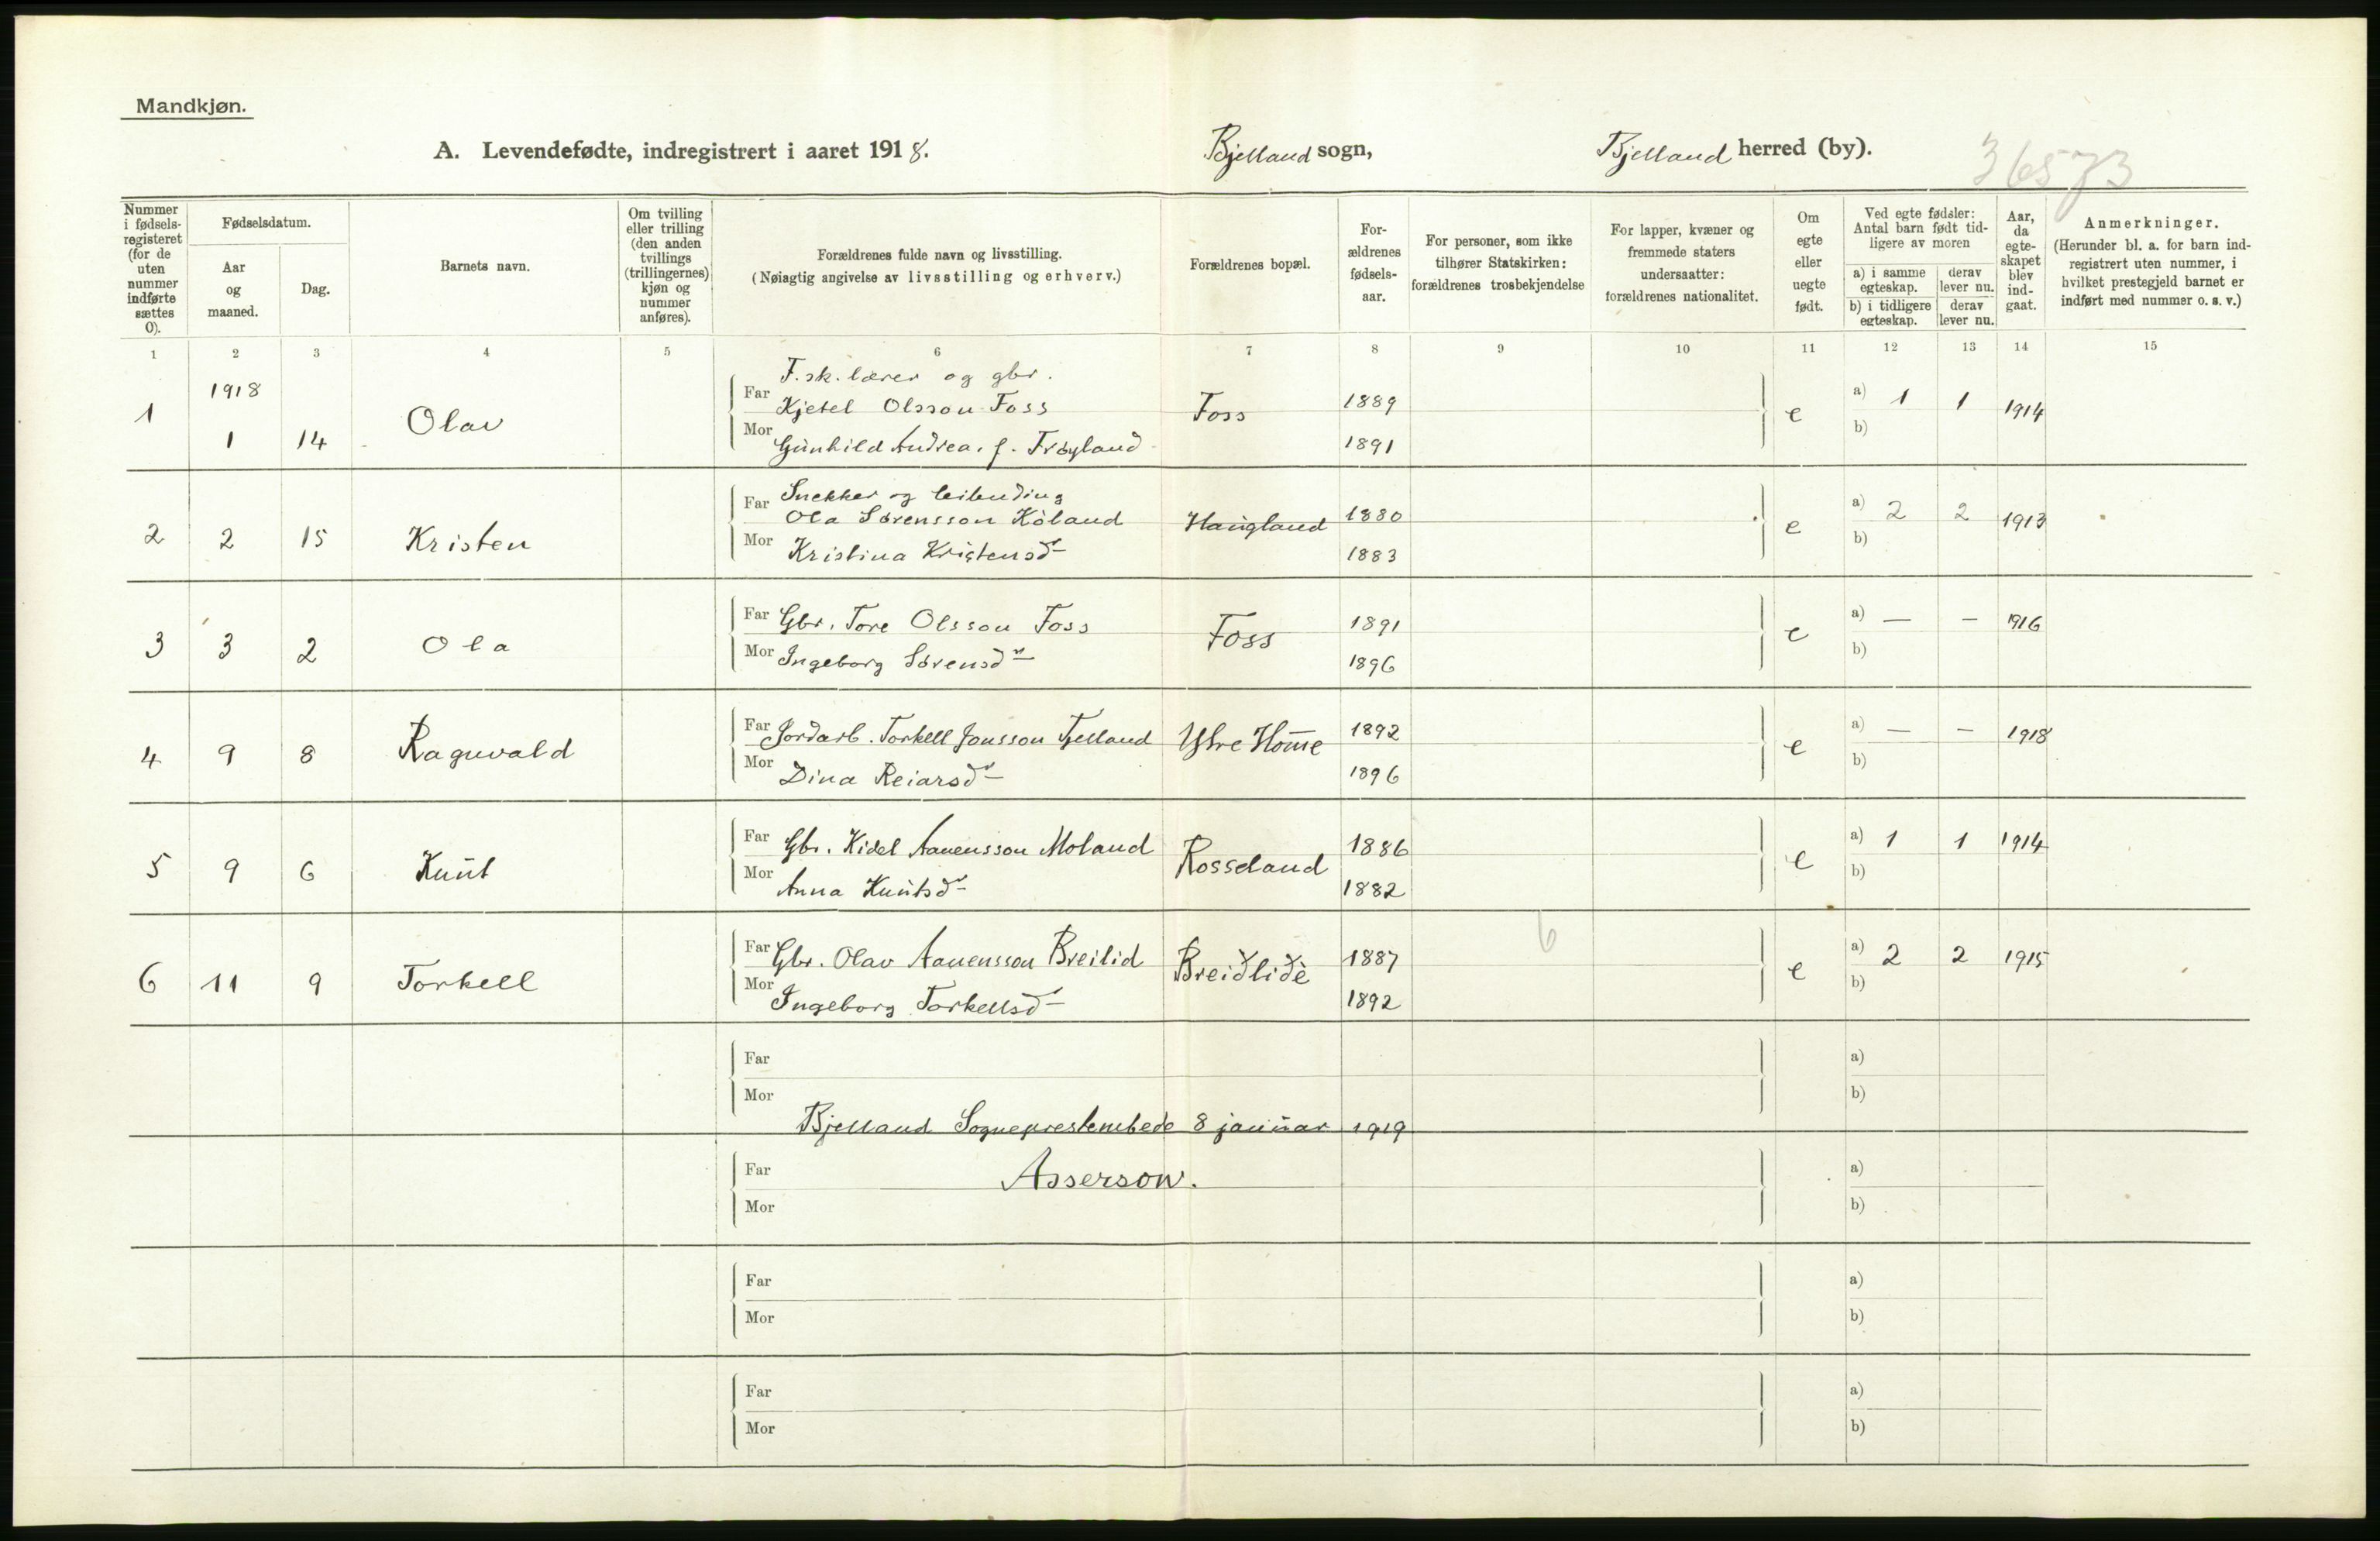 Mandkjøn.
A. Levendefødte, indregistrert i aaret 1918. Bjelland sogn, Bjelland herred (by). 36573
Nummer i fødselsregisteret (for de uten nummer indførte sættes 0).
Fødselsdatum.
Aar og maaned.
Dag.
Barnets navn.
Om tvilling eller trilling (den anden tvillings (trillingernes) kjøn og nummer anføres).
Forældrenes fulde navn og livsstilling.
(Nøiagtig angivelse av livsstilling og erhverv.)
Forældrenes bopæl.
Forældrenes fødselsaar.
For personer, som ikke tilhører Statskirken: forældrenes trosbekjendelse
For lapper, kvæner og fremmede staters undersaatter: forældrenes nationalitet.
Om egte eller uegte født.
Ved egte fødsler: Antal barn født tidligere av moren
a) i samme egteskap. derav lever nu.
b) i tidligere egteskap. derav lever nu.
Aar, da egteskapet blev indgaat.
Anmerkninger.
(Herunder bl. a. for barn indregistrert uten nummer, i hvilket prestegjeld barnet er indført med nummer o. s. v.)
1 2 3 4 5 6 7 8 9 10 11 12 13 14 15
F.sk.lærer og gbr.
1 1918 1 14 Olav Far Kjetel Olsson Foss Foss 1889 e a) 1 1 1914
Mor Gunhild Andrea, f. Frøyland 1891 b)
Snekker og leilending
2 2 15 Kristen Far Ola Sørensson Høland Haugland 1880 e a) 2 2 1913
Mor Kristina Kristensd 1883 b)
3 3 2 Ola Far Gbr. Tore Olsson Foss Foss 1891 e a) — — 1916
Mor Ingeborg Sørensd 1896 b)
4 9 8 Ragnvald Far Jordarb. Torkell Jonsson Fjelland Ytre Home 1892 e a) — — 1918
Mor Dina Reiarsd 1896 b)
5 9 6 Knut Far Gbr. Kidel Aanensson Moland Rosseland 1886 e a) 1 1 1914
Mor Anna Knutsd 1882 b)
6 11 9 Torkell Far Gbr. Olav Aanensson Breilid Breidlide 1887 6 e a) 2 2 1915
Mor Ingeborg Torkellsd 1892 b)
Far a)
Mor b)
Bjelland Sogneprestembede 8 januar 1919
Far Asserson. a)
Mor b)
Far a)
Mor b)
Far a)
Mor b)